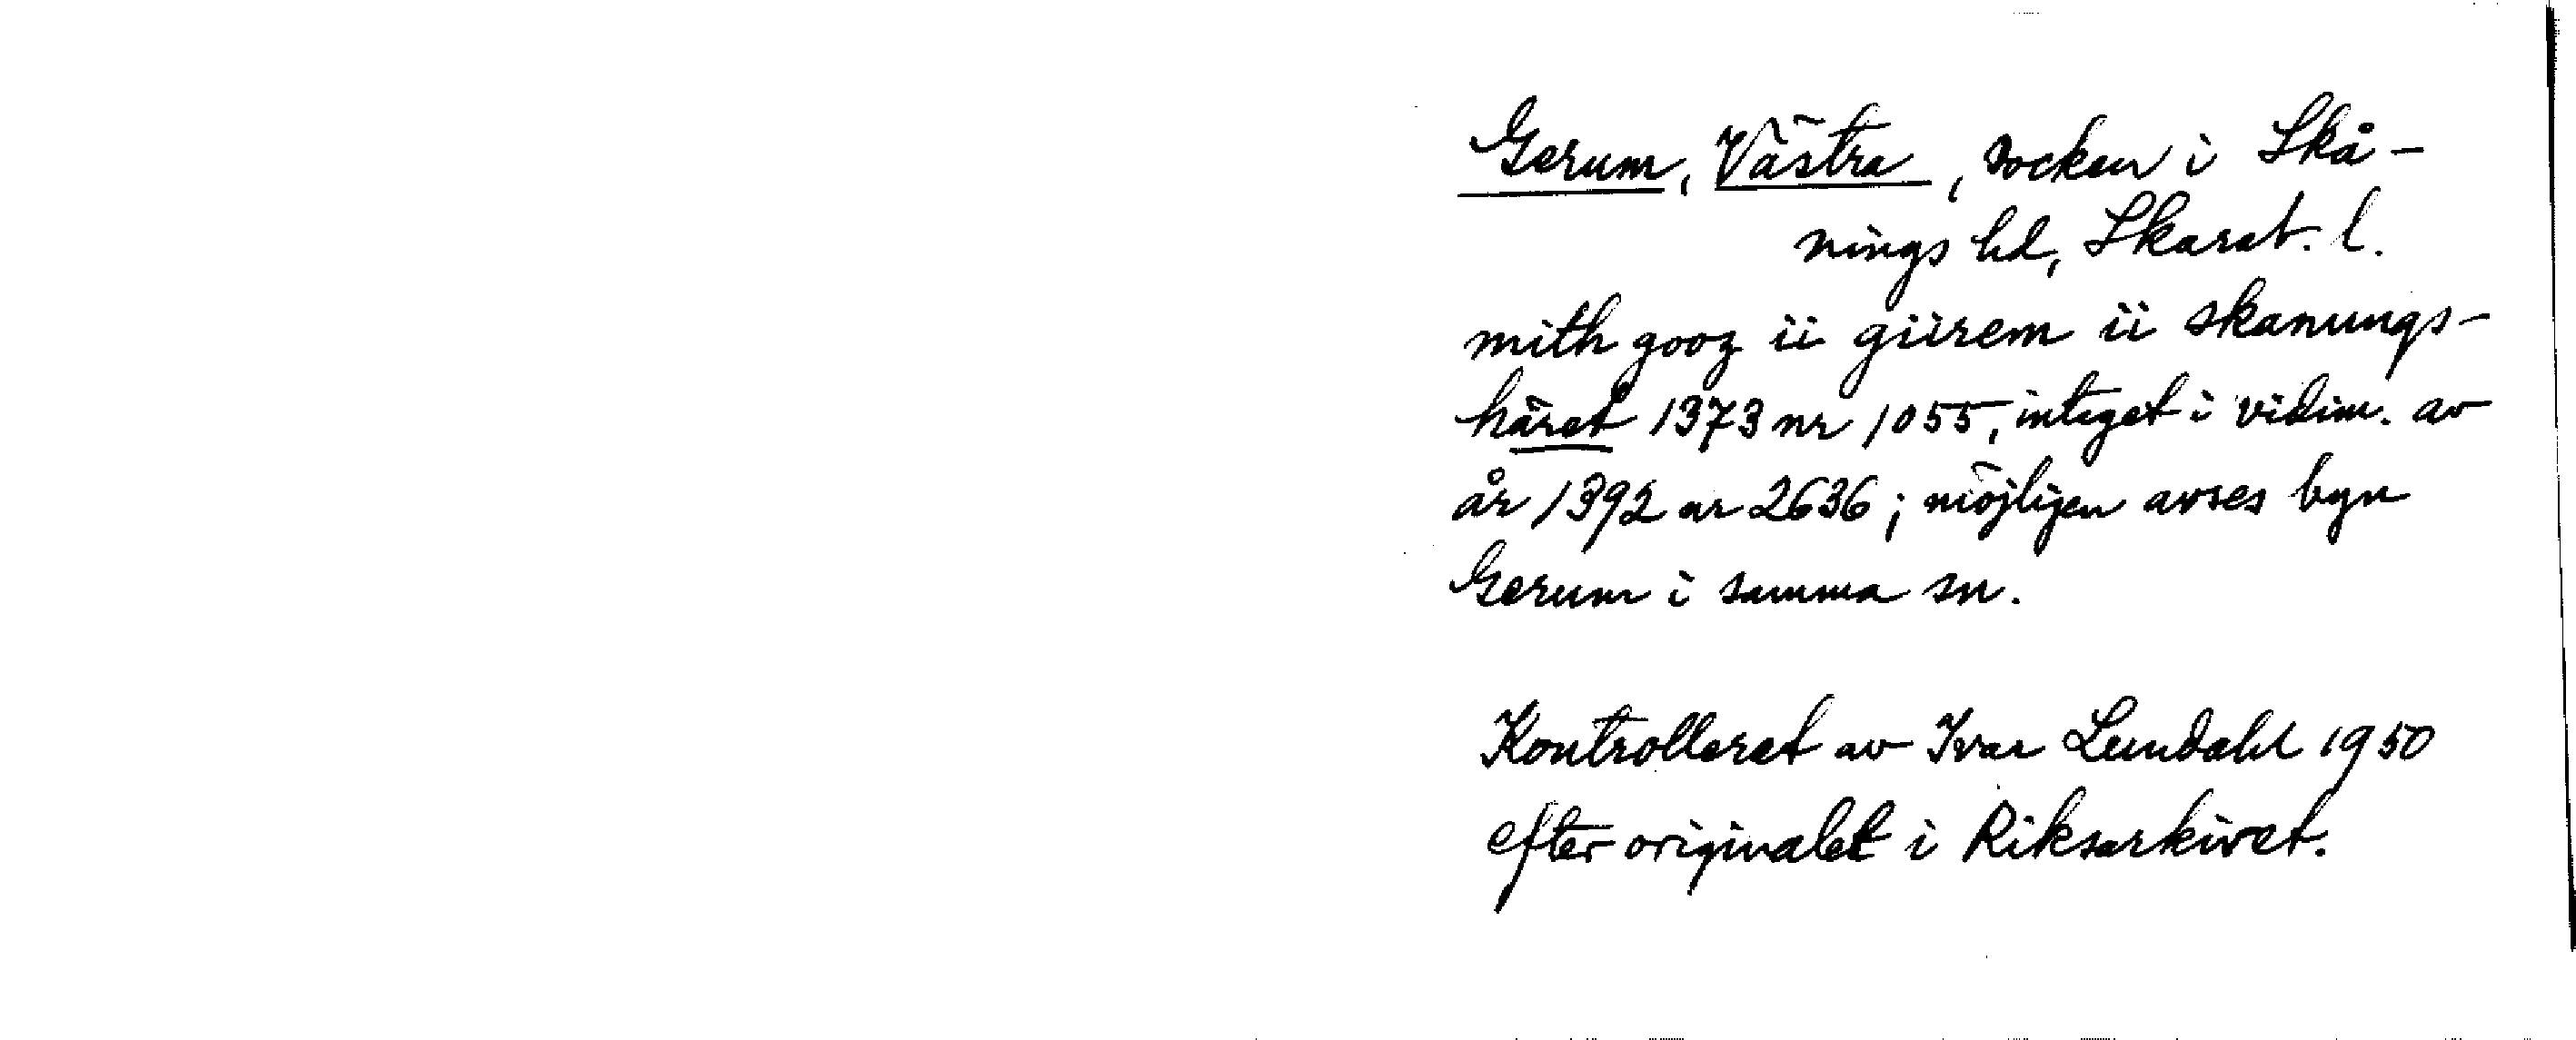 Gerum, Västra, socken i Skå-
nings hd, Skarab. l.
mith gooz ii giirem ii skanungs-
häret 1373 nr 1055, intaget i vidim. av
år 1392 nr 2636; möjligen avses byn
Gerum i samma sn.
Kontrollerat av Ivar Lundahl 1950
efter originalet i Riksarkivet.